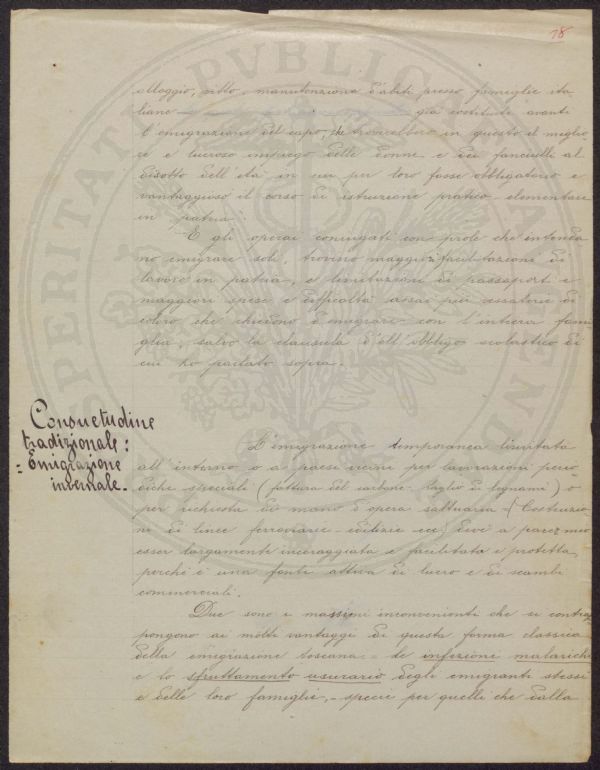 18
alloggio, vitto, manutenzione d'abiti presso famiglie ita
liane già costituite avanti
l'emigrazione del capo, che troverebbero in questo il miglio
re e lucroso impiego delle donne e dei fanciulli al
disotto dell'età in cui per loro fosse obbligatorio e
vantaggioso il corso di istruzione pratico-elementare
in patria.
E gli operai coniugati con prole che intenda
no emigrare soli, trovino maggiori facilitazioni di
lavoro in patria, e limitazioni di passaporti e
maggiori spese e difficoltà assai più vessatorie di
coloro che chiedono d'emigrare con l'intiera fami
glia, salvo la clausula dell'obbligo scolastico di
cui ho parlato sopra.
Consuetudine
tradizionale:
= Emigrazione
invernale.
L'emigrazione temporanea limitata
all'interno o a paesi vicini per lavorazioni perio
diche speciali (fattura del carbone - taglio di legnami) o
per richiesta di mano d'opera saltuaria (Costruzio
ni di linee ferroviarie - edilizie ecc.) deve a parer mio
esser largamente incoraggiata e facilitata e protetta,
perché è una fonte attiva di lucro e di scambi
commerciali.
Due sono i massimi inconvenienti che si contrap
pongono ai molti vantaggi di questa forma classica
della emigrazione toscana = le infezioni malariche
e lo sfruttamento usurario degli emigranti stessi
e delle loro famiglie, - specie per quelli che dalla
SPERITAT PVBLICAE AVGENDAE